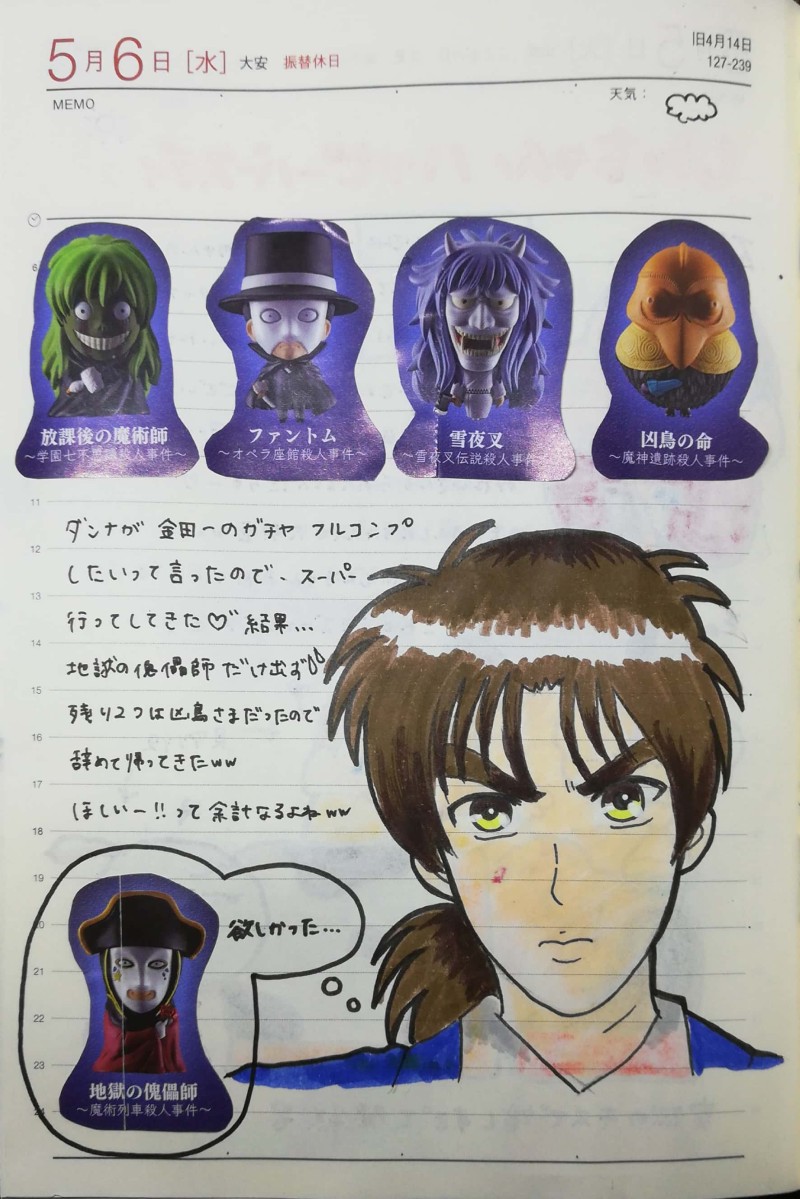 5月6日［水］ 大安 振替休日
旧4月14日
127-239
MEMO
天気：
6
放課後の魔術師
～学園七不思議殺人事件～
ファントム
～オペラ座館殺人事件～
雪夜叉
～雪夜叉伝説殺人事件～
凶鳥の命
～魔神遺跡殺人事件～
11
ダンナが 金田一のガチャ フルコンプ
12
したいって言ったので、スーパー
13
行ってしてきた♡ 結果...
14
地獄の傀儡師 だけ出ず
15
残り2つは凶鳥さまだったので
16
辞めて帰ってきたww
17
ほしいー!!って 余計なるよねww
18
19
20
欲しかった...
21
22
23
地獄の傀儡師
～魔術列車殺人事件～